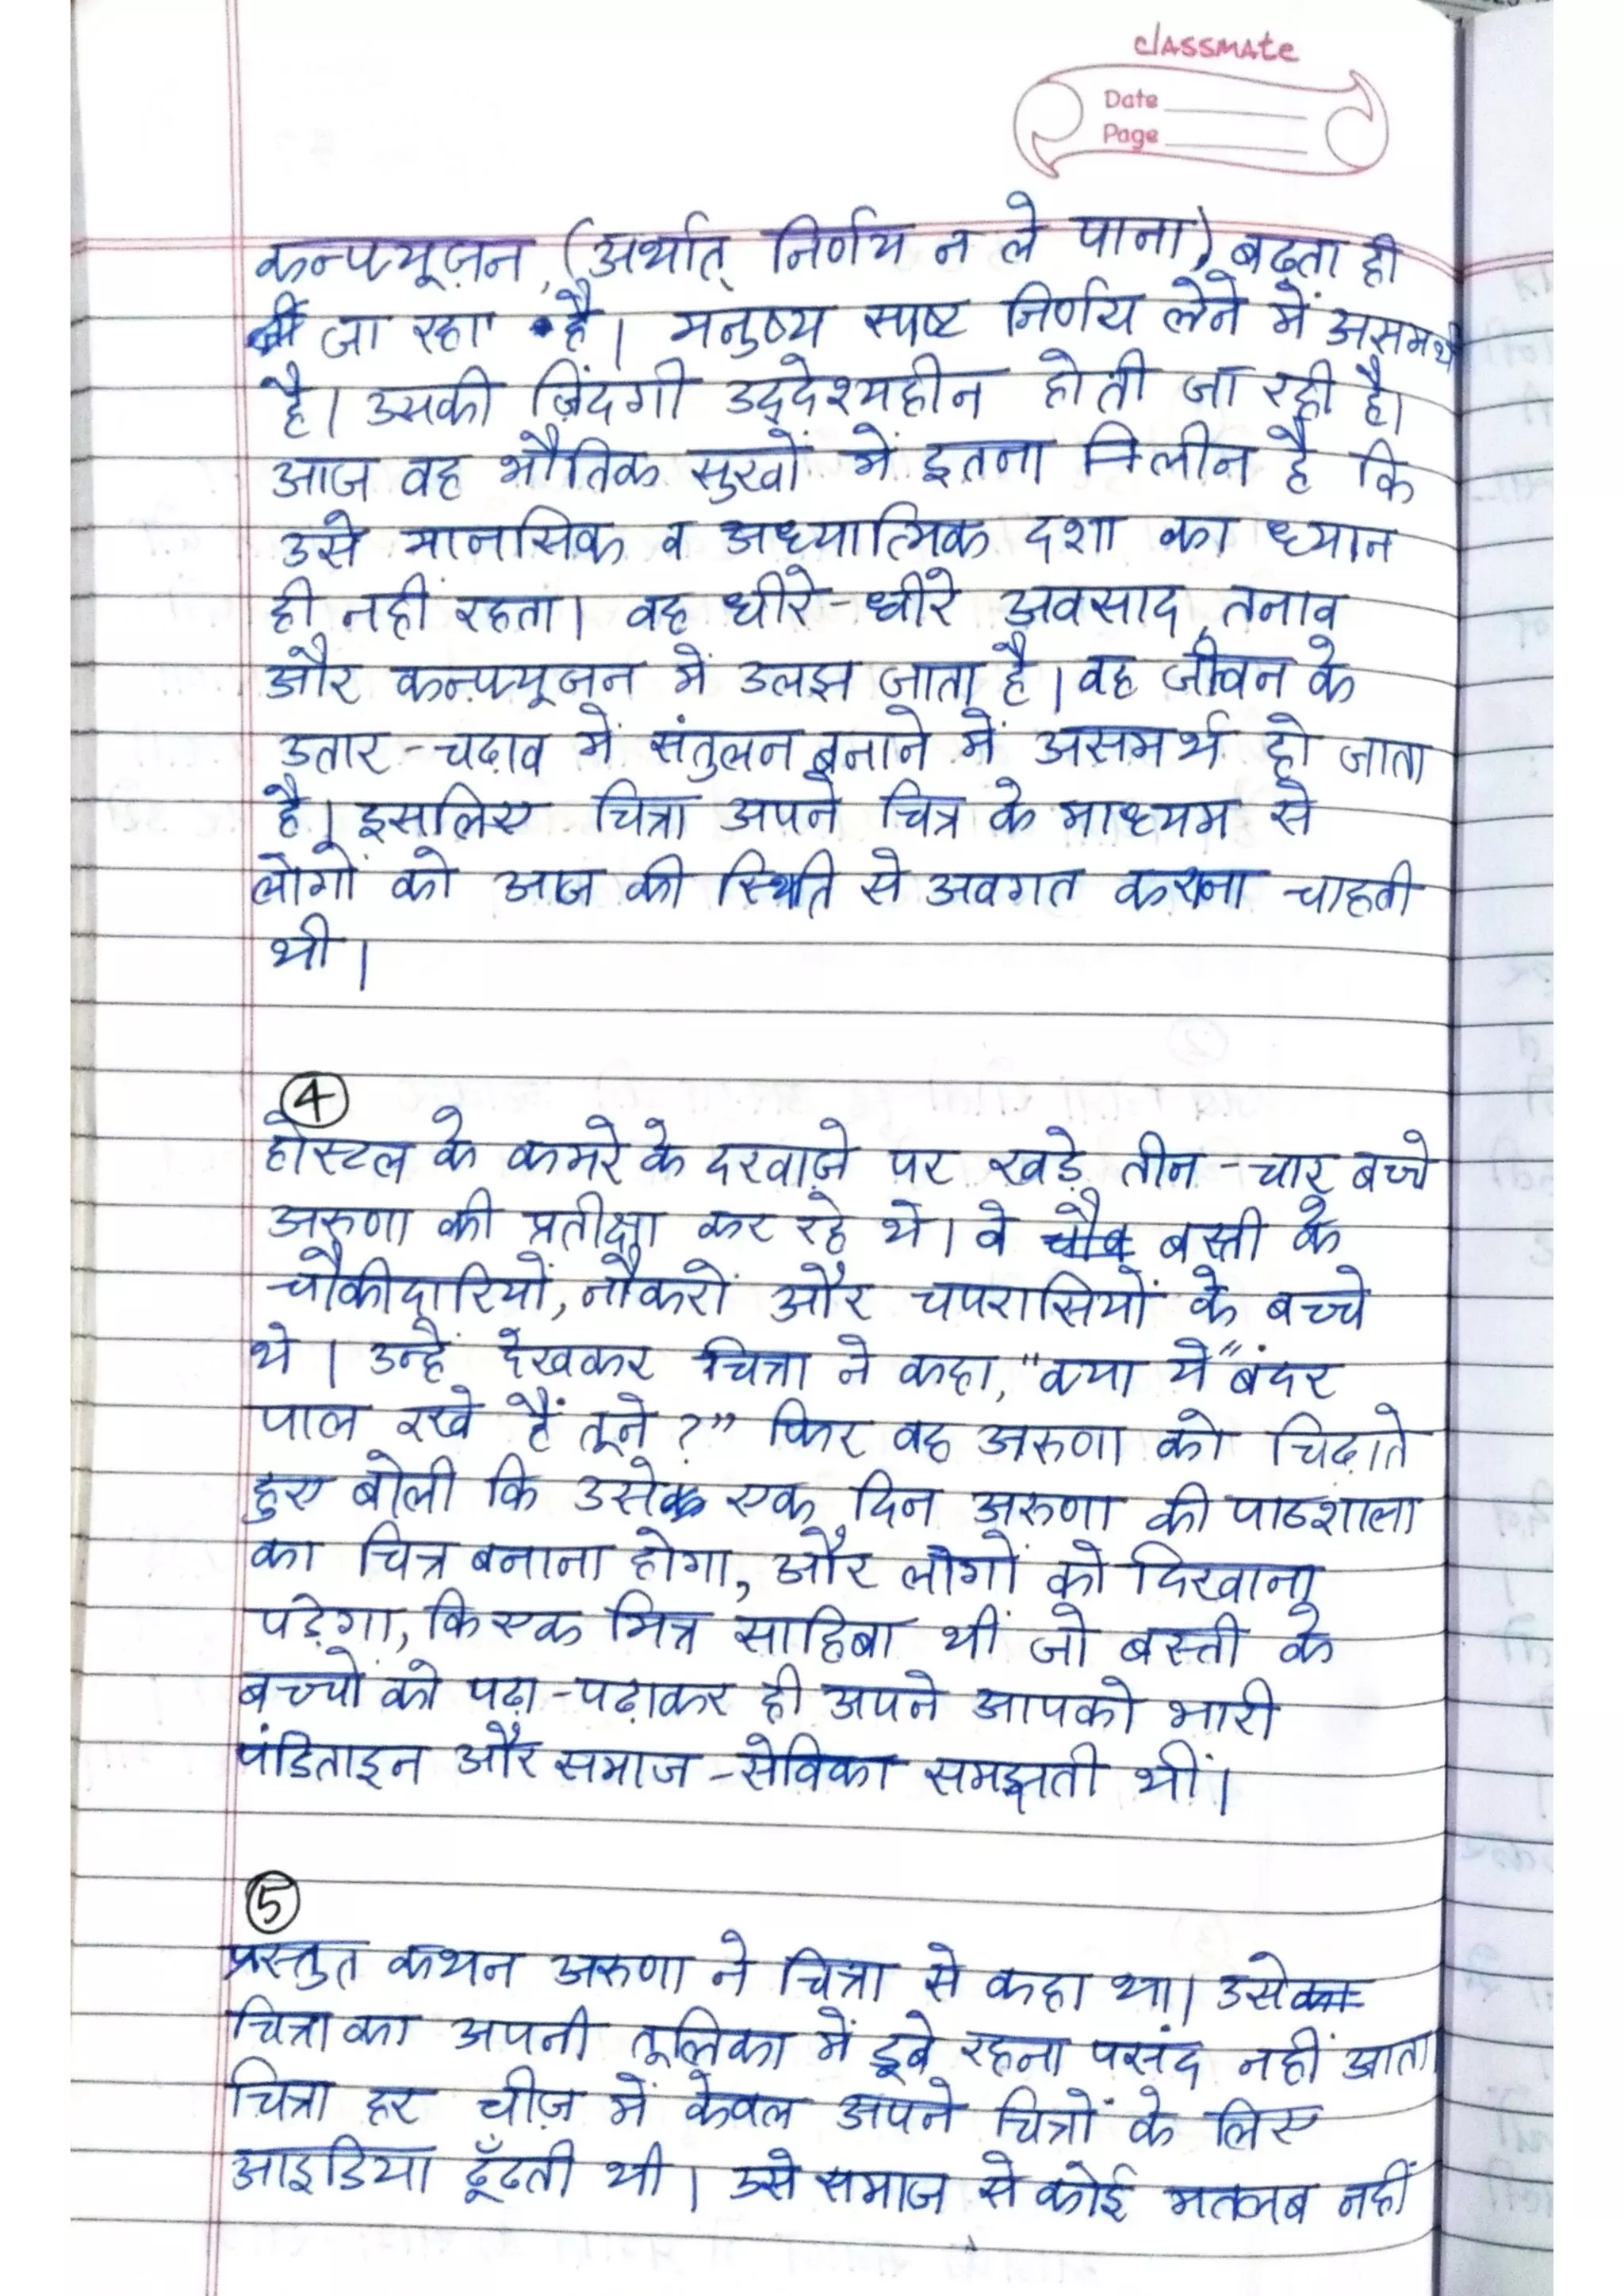 classmate
Date
Page
कन्फ्यूज़न, (अर्थात् निर्णय न ले पाना) बढ़ता ही
जा रहा है। मनुष्य स्पष्ट निर्णय लेने में असमर्थ
है। उसकी ज़िंदगी उद्देश्यहीन होती जा रही है।
आज वह भौतिक सुखों में इतना विलीन है कि
उसे मानसिक व अध्यात्मिक दशा का ध्यान
ही नहीं रहता। वह धीरे-धीरे अवसाद, तनाव
और कन्फ्यूज़न में उलझ जाता है। वह जीवन के
उतार-चढ़ाव में संतुलन बनाने में असमर्थ हो जाता
है। इसलिए चित्रा अपने चित्र के माध्यम से
लोगों को आज की स्थिति से अवगत कराना चाहती
थी।
4
होस्टल के कमरे के दरवाज़े पर खड़े तीन-चार बच्चे
अरुणा की प्रतीक्षा कर रहे थे। वे बस्ती के
चौकीदारियों, नौकरों और चपरासियों के बच्चे
थे। उन्हें देखकर चित्रा ने कहा, "क्या ये "बंदर
पाल रखे हैं तूने?" फिर वह अरुणा को चिढ़ाते
हुए बोली कि उसे एक दिन अरुणा की पाठशाला
का चित्र बनाना होगा, और लोगों को दिखाना
पड़ेगा, कि एक मित्र साहिबा थीं जो बस्ती के
बच्चों को पढ़ा-पढ़ाकर ही अपने आपको भारी
पंडिताइन और समाज-सेविका समझती थीं।
5
प्रस्तुत कथन अरुणा ने चित्रा से कहा था। उसे
चित्रा का अपनी तूलिका में डूबे रहना पसंद नहीं आता
चित्रा हर चीज़ में केवल अपने चित्रों के लिए
आइडिया ढूँढती थी। उसे समाज से कोई मतलब नहीं